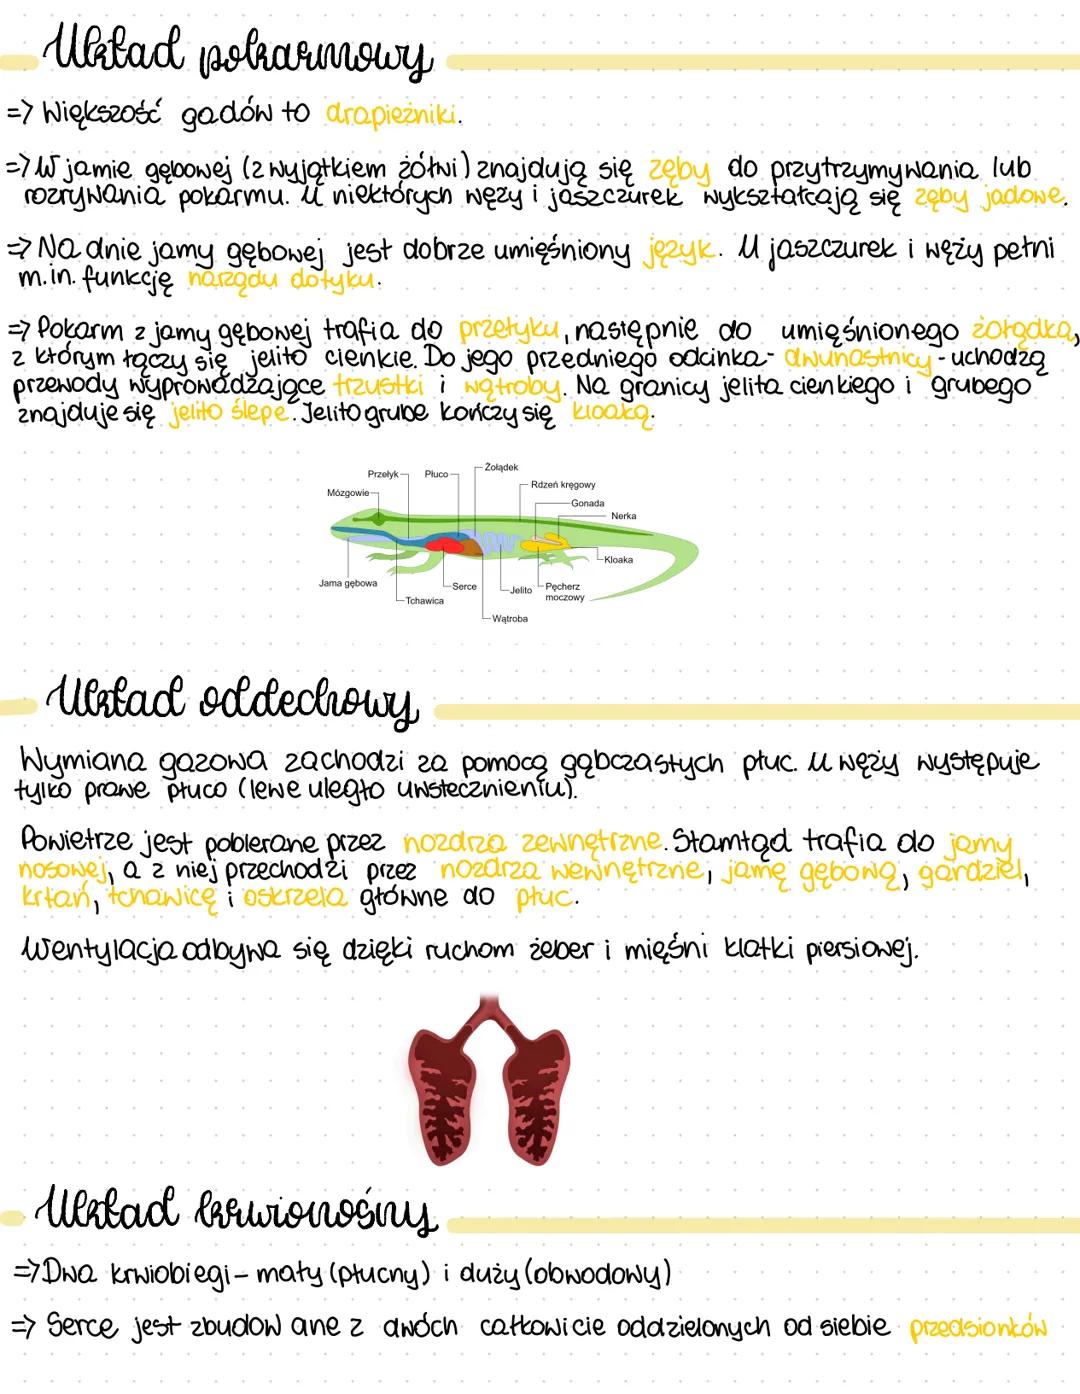 Układ pokarmowy
=> Większość gadów to drapieżniki.
=> W jamie gębowej (z wyjątkiem żółwi) znajdują się zęby do przytrzymywania lub
rozrywania pokarmu. U niektórych węży i jaszczurek wykształcają się zęby jadowe.
=> Na dnie jamy gębowej jest dobrze umięśniony język. U jaszczurek i węży pełni
m.in. funkcję narządu dotyku.
=> Pokarm z jamy gębowej trafia do przełyku, następnie do umięśnionego żołądka,
z którym łączy się jelito cienkie. Do jego przedniego odcinka - dwunastnicy - uchodzą
przewody wyprowadzające trzustki i wątroby. Na granicy jelita cienkiego i grubego
znajduje się jelito ślepe. Jelito grube kończy się kloaką.
Żołądek
Przełyk
Płuco
Rdzeń kręgowy
Mózgowie
Gonada
Nerka
Kloaka
Jama gębowa
Serce
Jelito
Pęcherz
moczowy
Tchawica
Wątroba
Układ oddechowy
Wymiana gazowa zachodzi za pomocą gąbczastych płuc. U węży występuje
tylko prawe płuco (lewe uległo uwstecznieniu).
Powietrze jest pobierane przez nozdrza zewnętrzne. Stamtąd trafia do jamy
nosowej, a z niej przechodzi przez nozdrza wewnętrzne, jamę gębową, gardziel,
krtań, tchawicę i oskrzela główne do płuc.
Wentylacja odbywa się dzięki ruchom żeber i mięśni klatki piersiowej.
Układ krwionośny
=> Dwa krwiobiegi - mały (płucny) i duży (obwodowy)
=> Serce jest zbudowane z dwóch całkowicie oddzielonych od siebie przedsionków